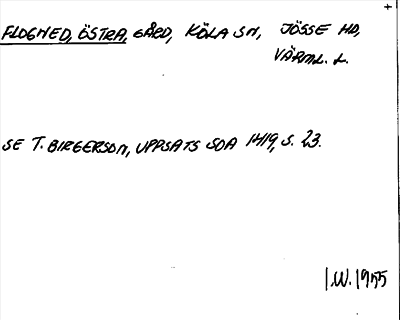 FLOGNED, ÖSTRA, GÅRD, KÖLA SN, JÖSSE HD,
VÄRML. L.
SE T. BIRGERSON, UPPSATS SOA 1419, S. 23.
I.W. 1955